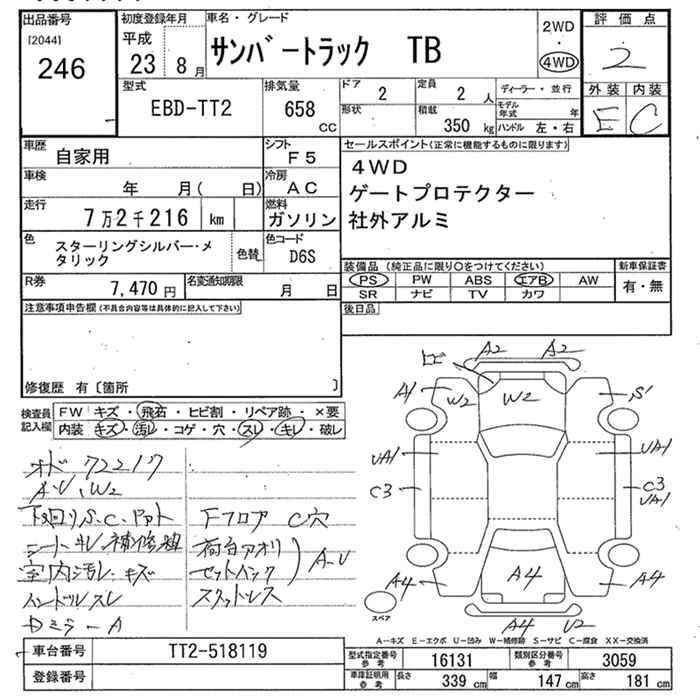 出品番号
[2044]
246
初度登録年月
平成
23 8月
車名・グレード
サンバートラック TB
2WD
・
4WD
評価点
2
外装 内装
E C
型式
EBD-TT2
排気量
658
cc
ドア
2
形状
定員
2 人
積載
350 kg
ディーラー・並行
モデル年式 年
ハンドル 左・右
車歴
自家用
シフト
F5
車検
年 月( 日)
冷房
AC
走行
7万2千216 km
燃料
ガソリン
色
スターリングシルバー・メタリック
色替
色コード
D6S
R券
7,470 円
名変通知期限
月 日
セールスポイント(正常に機能するものに限ります)
4WD
ゲートプロテクター
社外アルミ
装備品(純正品に限り○をつけてください)
新車保証書
PS PW ABS エアB AW
SR ナビ TV カワ
有・無
後日品
注意事項申告欄(不具合内容等は具体的に記入して下さい)
修復歴 有〔箇所 〕
検査員
記入欄
FW キズ・飛石・ヒビ割・リペア跡・×要
内装 キズ・汚レ・コゲ・穴・スレ・キレ・破レ
オド 72217
A・U、W2
下回りS.C.
シートキレ補修跡
室内汚レ.キズ
ハンドルスレ
Dミラ-A
Fフロア C穴
荷台アオリ
A-U
スタットレス
ヒビ
A2 A2
A1 W2 W2 S1
UA1 UA1
C3 C3
UA1
A4 A4 A4
A4 U2
スペア
A-キズ E-エクボ U-凹み W-補修跡 S-サビ C-腐食 XX-交換済
車台番号
TT2-518119
登録番号
型式指定番号
参考
16131
類別区分番号
参考
3059
車庫証明用
参考
長さ 339 cm 幅 147 cm 高さ 181 cm